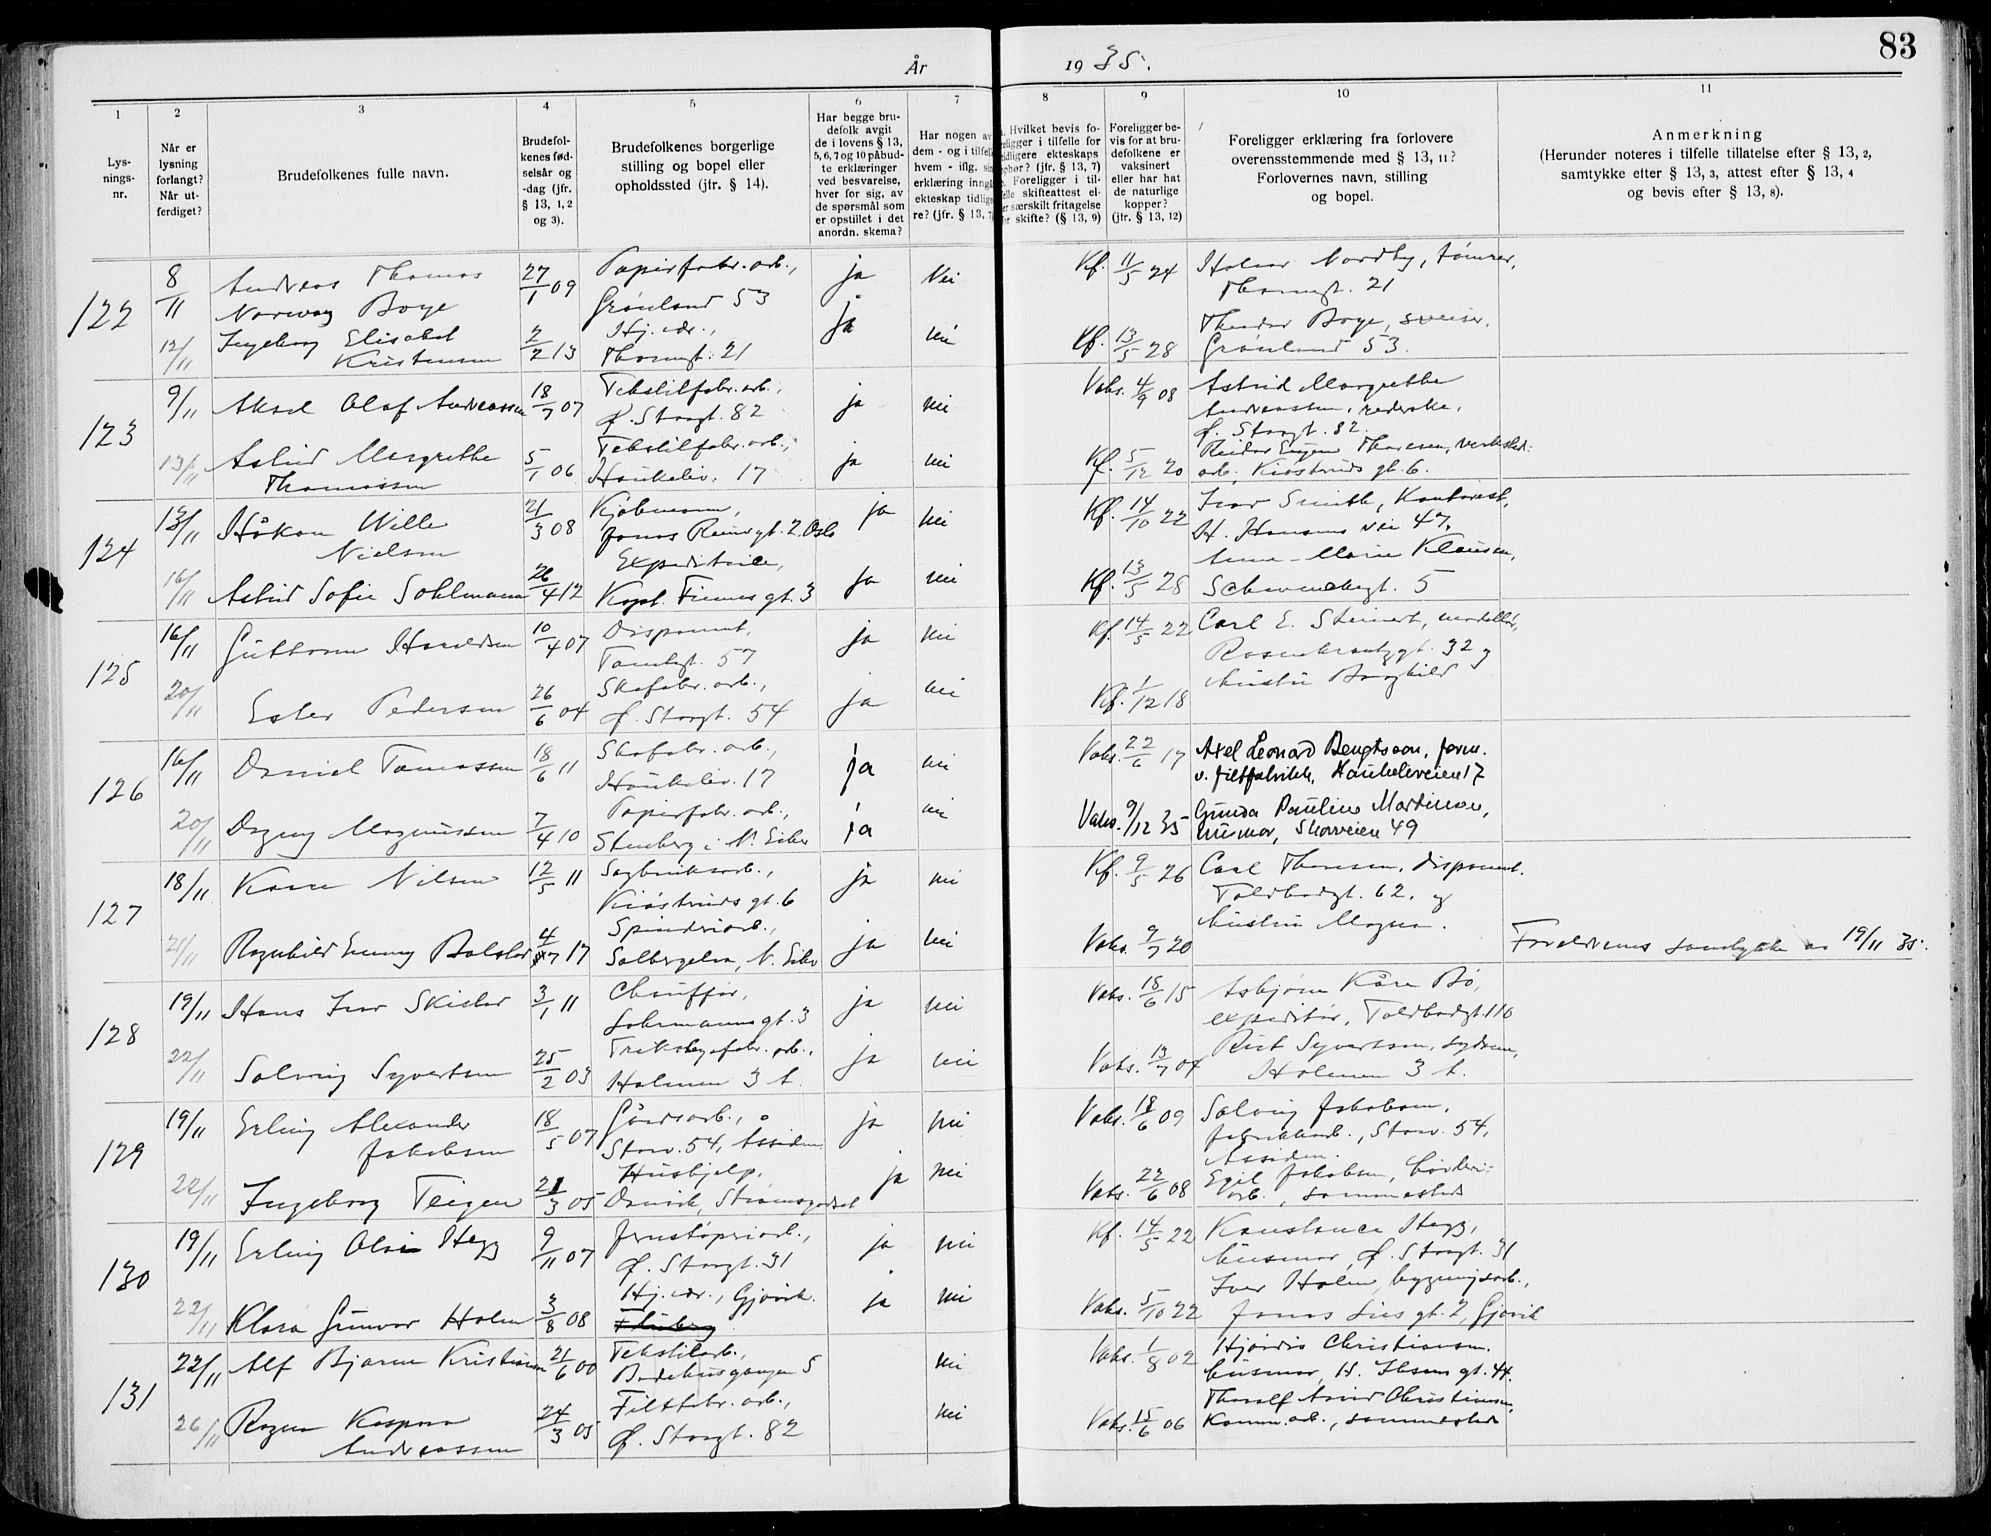 År
1935.
83
1
2
3
4
5
6
7
8
9
10
11
Lys-
nings-
nr.
Når er
lysning
forlangt?
Når ut-
ferdiget?
Brudefolkenes fulle navn.
Brudefol-
kenes fød-
selsår og
-dag (jfr.
§ 13, 1, 2
og 3).
Brudefolkenes borgerlige
stilling og bopel eller
opholdssted (jfr. § 14).
Har begge bru-
defolk avgit
de i lovens § 13,
5, 6, 7 og 10 påbud-
te erklæringer
ved besvarelse,
hver for sig, av
de spørsmål som
er opstillet i det
anordn. skema?
Har nogen av
dem - og i tilfelle
hvem - iflg.
erklæring inngå
ekteskap tidlige-
re? (jfr. § 13, 7)
Hvilket bevis fo-
religger i tilfelle for
tidligere ekteskaps
ophør? (jfr. § 13, 7)
Foreligger i til-
felle skifteattest el-
ler særskilt fritagelse
for skifte? (§ 13, 9)
Foreligger be-
vis for at bru-
defolkene er
vaksinert
eller har hat
de naturlige
kopper?
(jfr. § 13, 12)
Foreligger erklæring fra forlovere
overensstemmende med § 13, 11?
Forlovernes navn, stilling
og bopel.
Anmerkning
(Herunder noteres i tilfelle tillatelse efter § 13, 2,
samtykke efter § 13, 3, attest efter § 13, 4
og bevis efter § 13, 8).
122
8/11
Andreas Thomas
Norway Boye
27/1 09
Papirfabr. arb.,
Grønland 53
ja
Nei
Kf. 11/5 24
Nordby, tømrer,
Thornegt. 21
12/11
Ingeborg Elisabet
Kristensen
2/2 13
Hj. vær.,
Thornegt. 21
ja
nei
Kf. 13/5 28
Theodor Boye, sveiser,
Grønland 53.
123
9/11
Aksel Olaf Andreassen
18/7 07
Tekstilfabr. arb.,
Ø. Storgt. 82
ja
nei
Vaks. 4/9 08
Astrid Margrethe
Andreassen,
Ø. Storgt. 82.
13/11
Astrid Margrethe
Thomassen
5/1 06
Tekstilfabr. arb.,
Haukeliv. 17
ja
nei
Kf. 5/12 20
Reidar Eugen Thoresen, verksted-
arb., Kiøsteruds gt. 6.
124
12/11
Håkon Wille
Nielsen
21/3 08
Kjøbmann,
Jonas Reinsgt. 2, Oslo
ja
nei
Kf. 14/10 22
Ivar Smith, Kontorist,
H. Hansens vei 47,
16/11
Astrid Sofie Sohlmann
26/4 12
Expeditrise,
Kapt. Finnes gt. 3
ja
nei
Kf. 13/5 28
Anna-Marie Klausen,
Schwenckegt. 5
125
16/11
Guttorm Haraldsen
10/4 07
Disponent,
Tomtegt. 57
ja
nei
Kf. 14/5 22
Carl E. Steinert, modellør,
Rosenkrantzgt. 32 og
hustru Borghild
20/11
Ester Pedersen
26/6 04
Skofabr. arb.,
Ø. Storgt. 54
ja
nei
Kf. 1/12 18
126
16/11
Daniel Tomassen
18/6 11
Skofabr. arb.,
Haukeliv. 17
ja
nei
Vaks. 22/6 17
Axel Leonard Bengtsson, form.
v. filtfabrikk, Haukeliveien 17
20/11
Dagny Magnussen
7/4 10
Papirfabr. arb.,
Stenberg i N. Eiker
ja
nei
Vaks. 9/12 35
Gunda Pauline Martinsen,
husmor, Skorveien 49
127
18/11
Kåre Nilsen
12/5 11
Sagbruksarb.,
Kiøsteruds gt. 6
ja
nei
Kf. 9/5 26
Carl Thoresen, disponent.
Toldbodgt. 62. og
hustru Magna.
21/11
Ragnhild Emmy Bolstad
4/7 17
Spinneriarb.,
Solbergelva, N. Eiker
ja
nei
Vaks. 9/7 20
Foreldrenes samtykke av 19/11 35.
128
19/11
Hans Ivar Skistad
3/1 11
Chauffør,
Lohrmannsgt. 3
ja
nei
Vaks. 18/6 15
Asbjørn Kåre Bø,
expeditør, Toldbodgt. 110
22/11
Solveig Syvertsen
25/2 03
Trikotagefabr. arb.,
Holmen 3 b.
ja
nei
Vaks. 13/7 04
Rut Syvertsen, sydame,
Holmen 3 b.
129
19/11
Erling Alexander
Jakobsen
18/5 07
Gårdsarb.,
Storv. 54, Åssiden
ja
nei
Vaks. 18/6 09
Solveig Jakobsen,
fabrikkarb., Storv. 54,
Åssiden.
22/11
Ingeborg Teigen
21/3 05
Hushjelp,
Danvik, Strømsgodset
ja
nei
Vaks. 22/6 08
Egil Jakobsen,
arb., sammesteds
130
19/11
Erling Olai Hegg
9/11 07
Jernstøperiarb.,
Ø. Storgt. 31
ja
nei
Kf. 14/5 22
Konstance Hegg,
husmor, Ø. Storgt. 31
22/11
Klara Gunvor Holm
3/8 08
Hj. vær., Gjøvik.
ja
nei
Vaks. 5/10 22
Iver Holm, bygningsarb.,
Jonas Lies gt. 2, Gjøvik
131
22/11
Alf Bjarne Kristiansen
21/6 00
Tekstilarb.,
Bedehusgangen 5
nei
Vaks. 1/8 02
Hjørdis Christiansen.
husmor, H. Ibsens gt. 44.
26/11
Ragna Kaspara
Andreassen
24/3 05
Filtfabr. arb.,
Ø. Storgt. 82
nei
Vaks. 15/6 06
Thoralf Arvid Christiansen,
Komm. arb., sammesteds